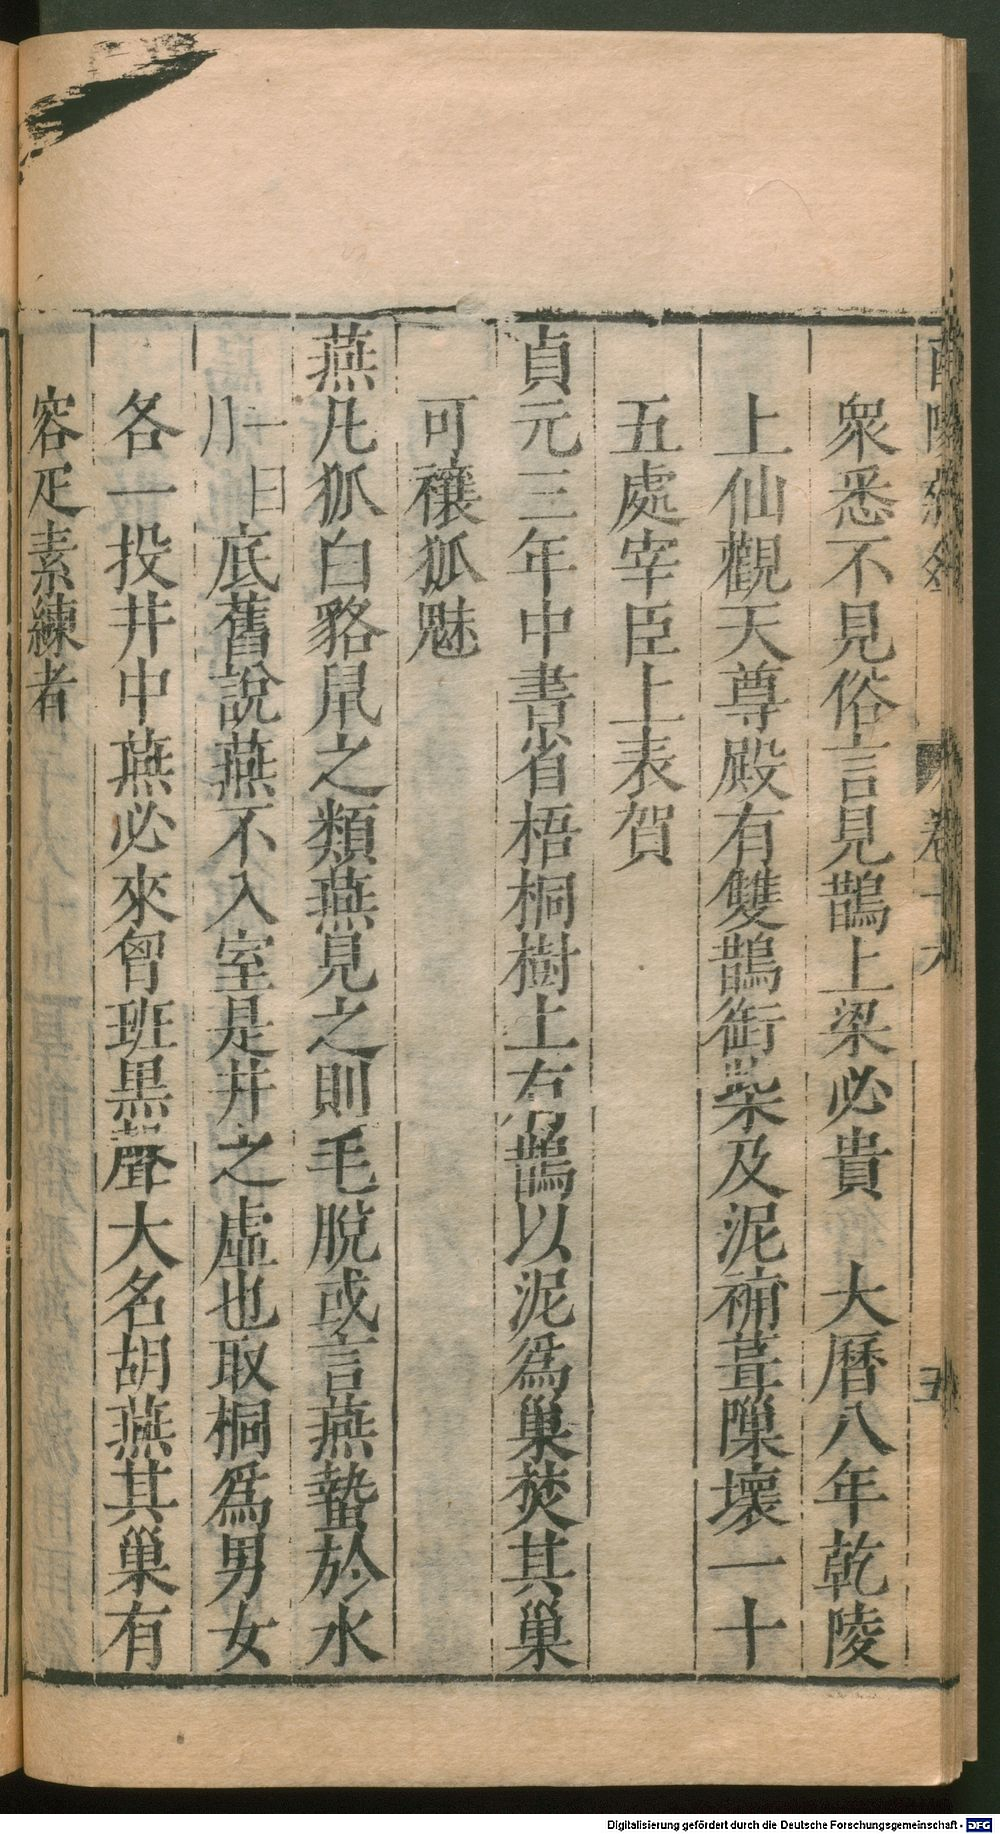 衆悉不見俗言見鵲上梁必貴　大曆八年乾陵
上仙觀天尊殿有雙鵲銜柴及泥補葺隟壞一十
五處宰臣上表賀
貞元三年中書省梧桐樹上有鵲以泥爲巢焚其巢
可禳狐魅
燕凡狐白貉鼠之類燕見之則毛脫或言燕蟄於水
一曰月底舊說燕不入室是井之虛也取桐爲男女
各一投井中燕必來胷班黑聲大名胡燕其巢有
容疋素練者
卷十六
五
Digitalisierung gefördert durch die Deutsche Forschungsgemeinschaft - DFG